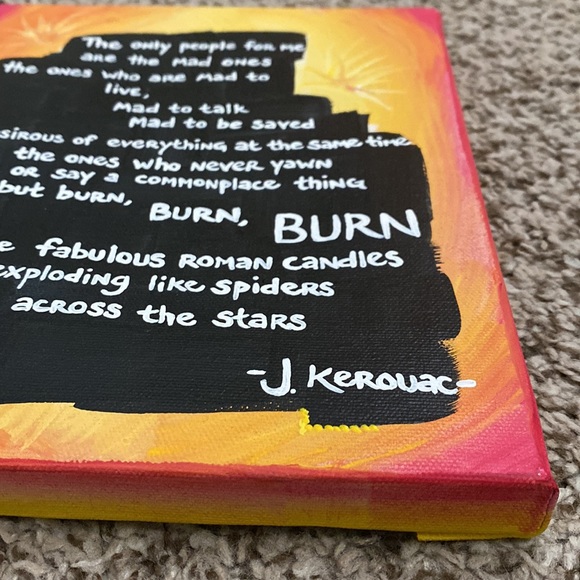 The only people for me
are the mad ones
the ones who are mad to
live,
mad to talk
mad to be saved
sirous of everything at the same time
the ones who never yawn
or say a commonplace thing
but burn, BURN, BURN
e fabulous Roman candles
exploding like spiders
across the stars
-J. Kerouac-